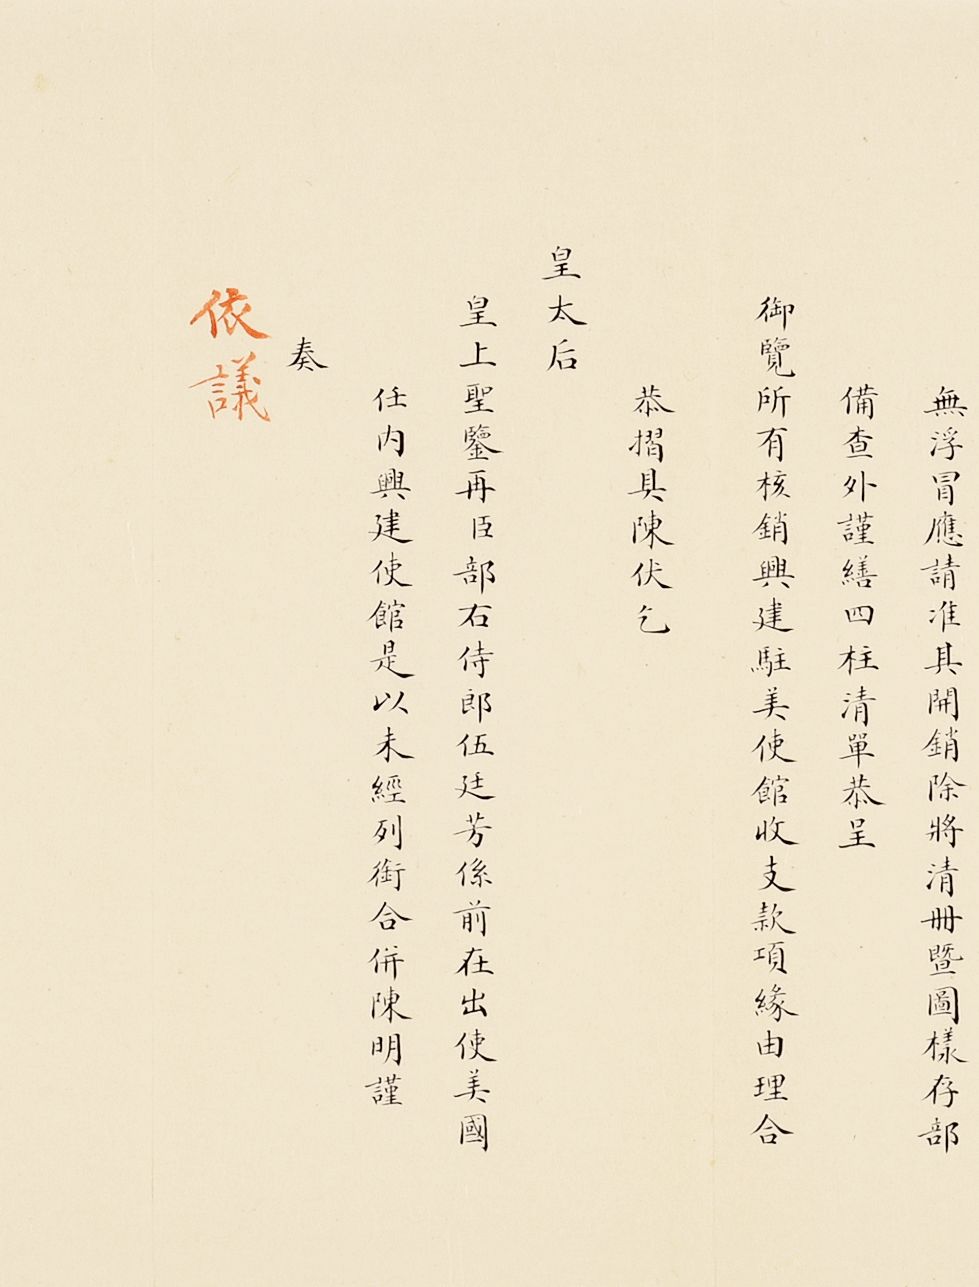 無浮冒應請准其開銷除將清冊暨圖樣存部
備查外謹繕四柱清單恭呈
御覽所有核銷興建駐美使館收支款項緣由理合
恭摺具陳伏乞
皇太后
皇上聖鑒再臣部右侍郎伍廷芳係前在出使美國
任內興建使館是以未經列銜合併陳明謹
奏
依議